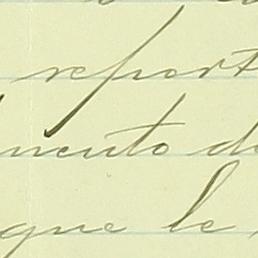 report
mento d
que le